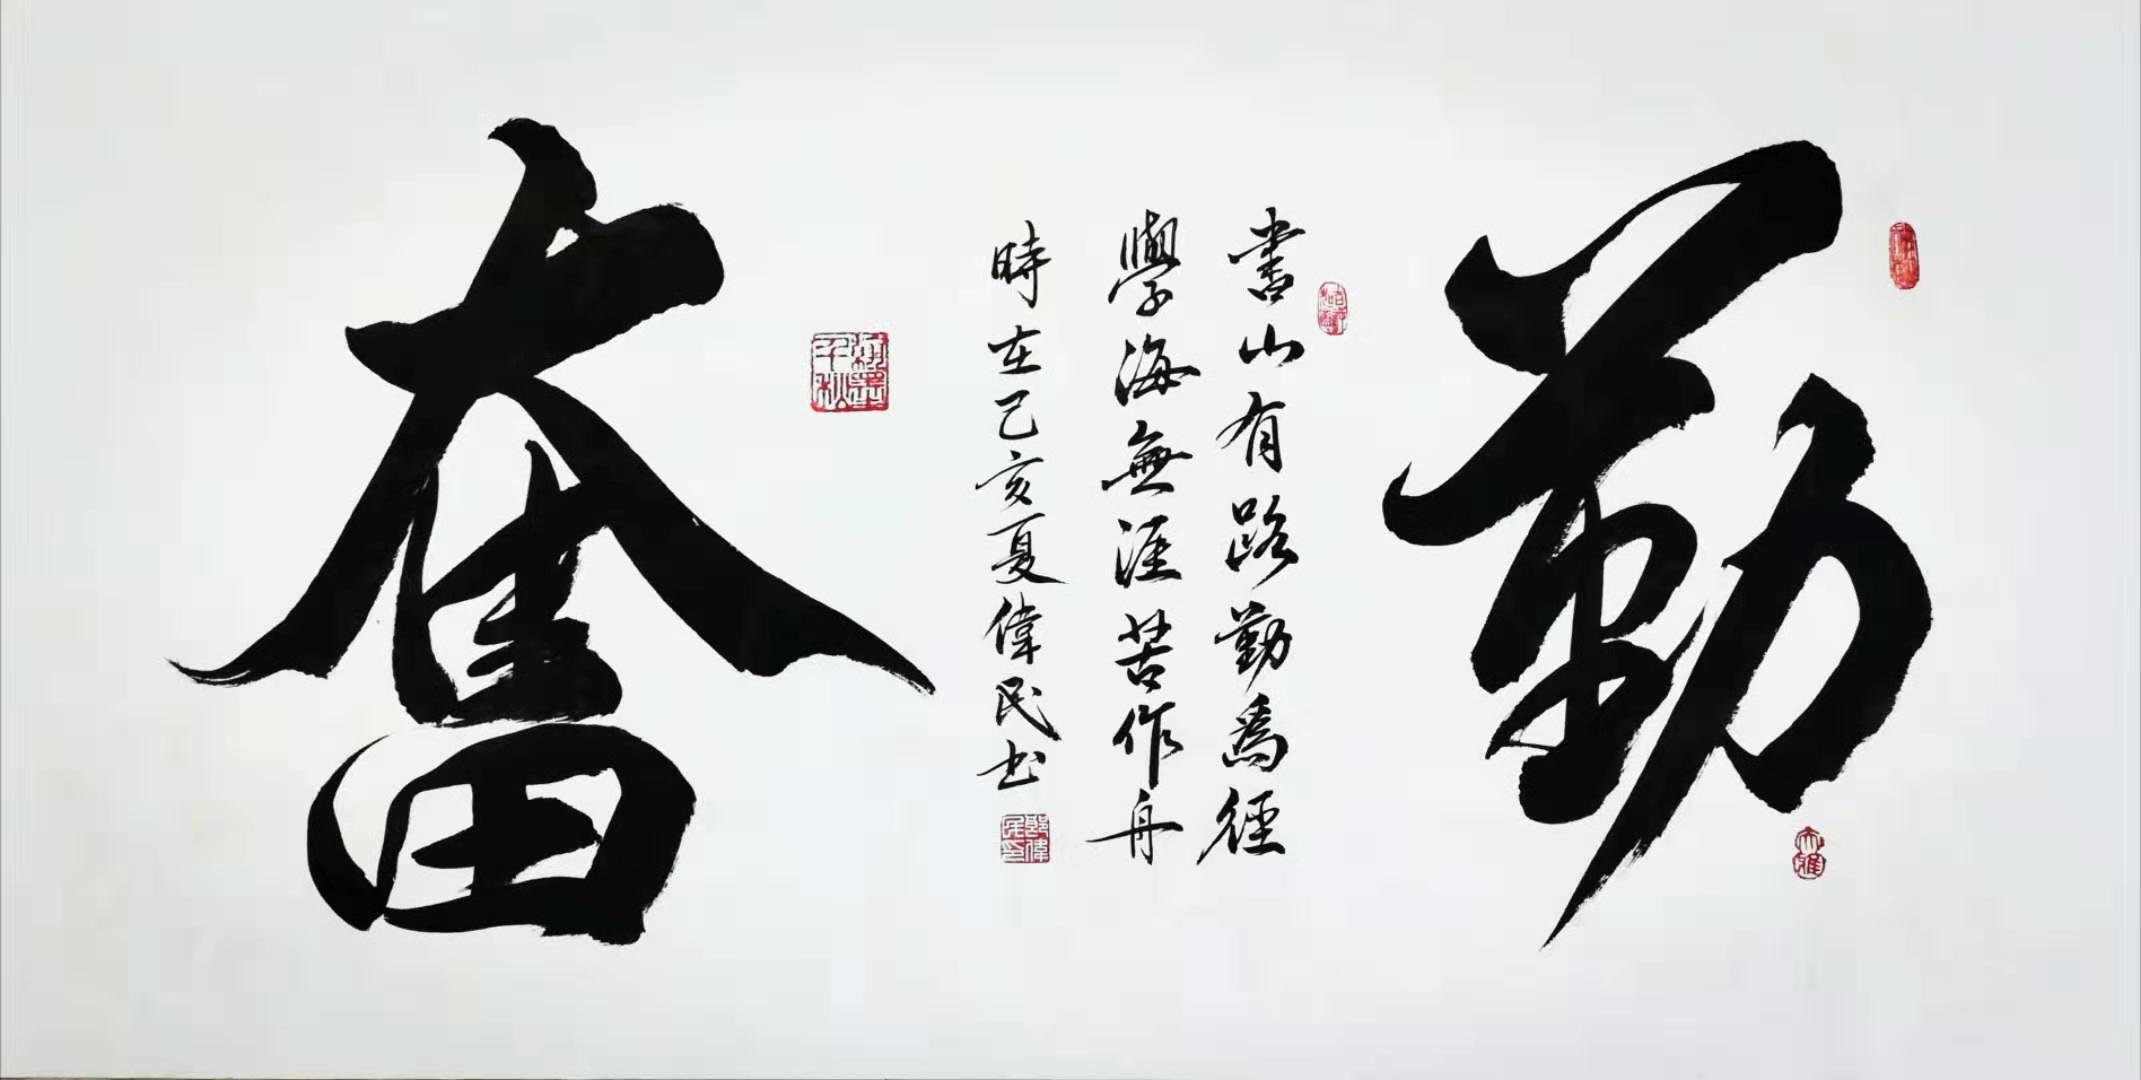 勤
書山有路勤為徑
學海無涯苦作舟
時在己亥夏偉民书
奮